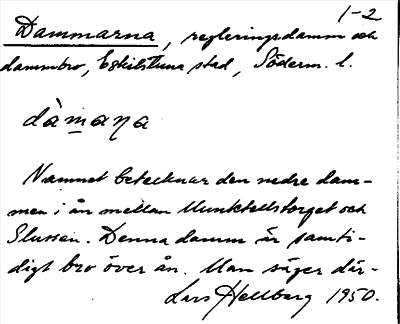 1-2
Dammarna, regleringsdamm och
dammbro, Eskilstuna stad, Söderm. l.
dàmaṇa
Namnet betecknar den nedre dam-
men i ån mellan Munktellstorget och
Slussen. Denna damm är samti-
digt bro över ån. Man säger där-
Lars Hellberg 1950.